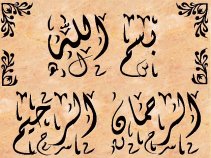 بسم الله
الرحمان الرحيم